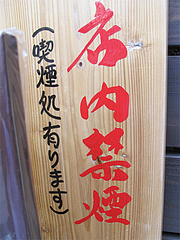 店内禁煙
(喫煙処有ります)